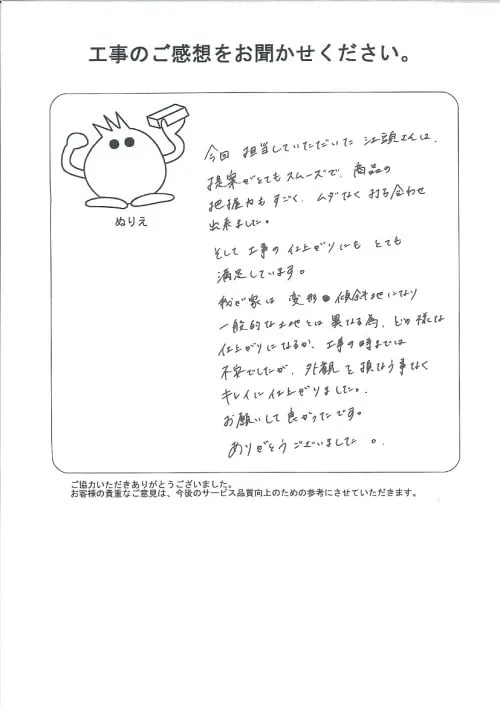 工事のご感想をお聞かせください。
ぬりえ
今回 担当していただいた 江頭さんは、
提案がとてもスムーズで、商品の
把握力もすごく、ムダなく打ち合わせ
出来ました。
そして工事の仕上がりにも とても
満足しています。
我が家は 変形 傾斜地になり
一般的な土地とは異なる為、どの様な
仕上がりになるか、工事の時までは
不安でしたが、外観を損なう事なく
キレイに仕上がりました。
お願いして良かったです。
ありがとうございました 。
ご協力いただきありがとうございました。
お客様の貴重なご意見は、今後のサービス品質向上のための参考にさせていただきます。